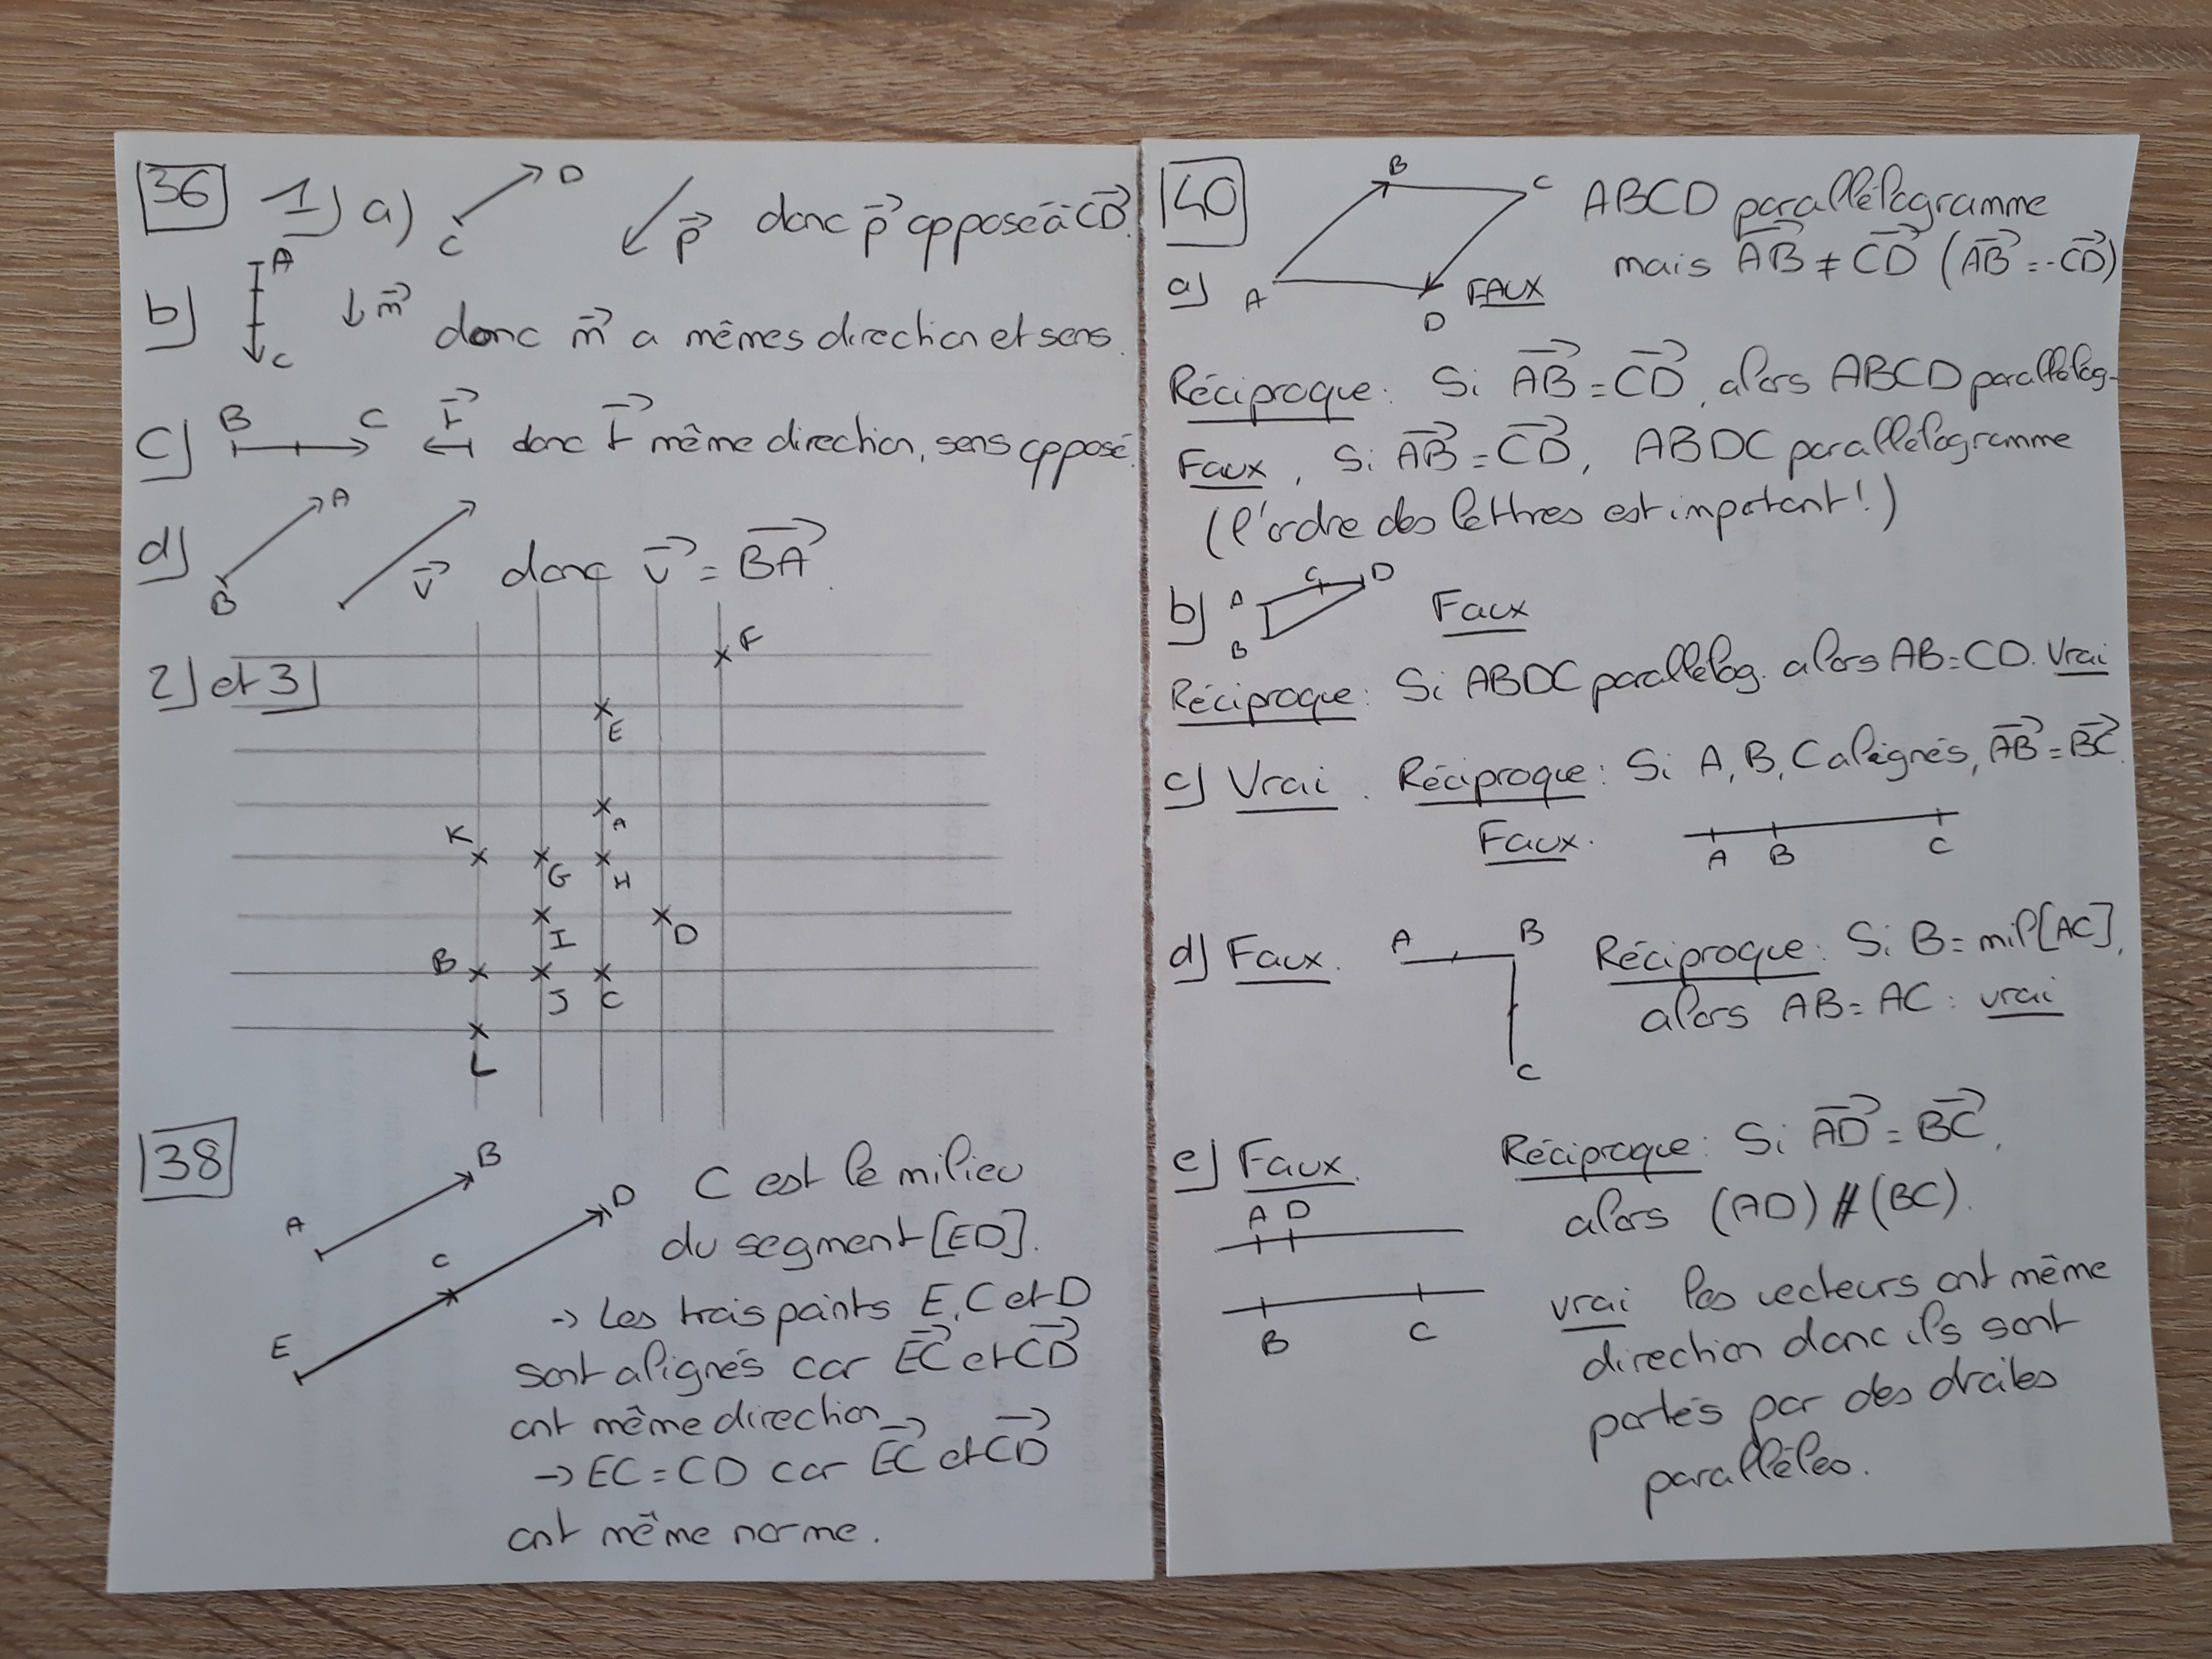 36 1) a) C D p⃗ donc p⃗ opposé à CD⃗.
b) A C m⃗ donc m⃗ a mêmes direction et sens.
c) B C r⃗ donc r⃗ même direction, sens opposé.
d) B A v⃗ donc v⃗ = BA⃗.
2) et 3)
F
E
A
K G H
I D
B J C
L
38 A B
E C D
C est le milieu
du segment [ED].
→ Les trois points E, C et D
sont alignés car EC⃗ et CD⃗
ont même direction
→ EC = CD car EC⃗ et CD⃗
ont même norme.
40 B C ABCD parallélogramme
mais AB⃗ ≠ CD⃗ (AB⃗ = -CD⃗)
a) A D FAUX
Réciproque : Si AB⃗ = CD⃗, alors ABCD parallélog-
Faux, Si AB⃗ = CD⃗, ABDC parallélogramme
(l'ordre des lettres est important !)
b) A B C D Faux
Réciproque : Si ABDC parallélog. alors AB = CD. Vrai
c) Vrai. Réciproque : Si A, B, C alignés, AB⃗ = BC⃗.
Faux. A B C
d) Faux. A B C Réciproque : Si B = mil[AC],
alors AB = AC : vrai
e) Faux. Réciproque : Si AD⃗ = BC⃗,
alors (AD) // (BC).
A D
B C
vrai les vecteurs ont même
direction donc ils sont
portés par des droites
parallèles.